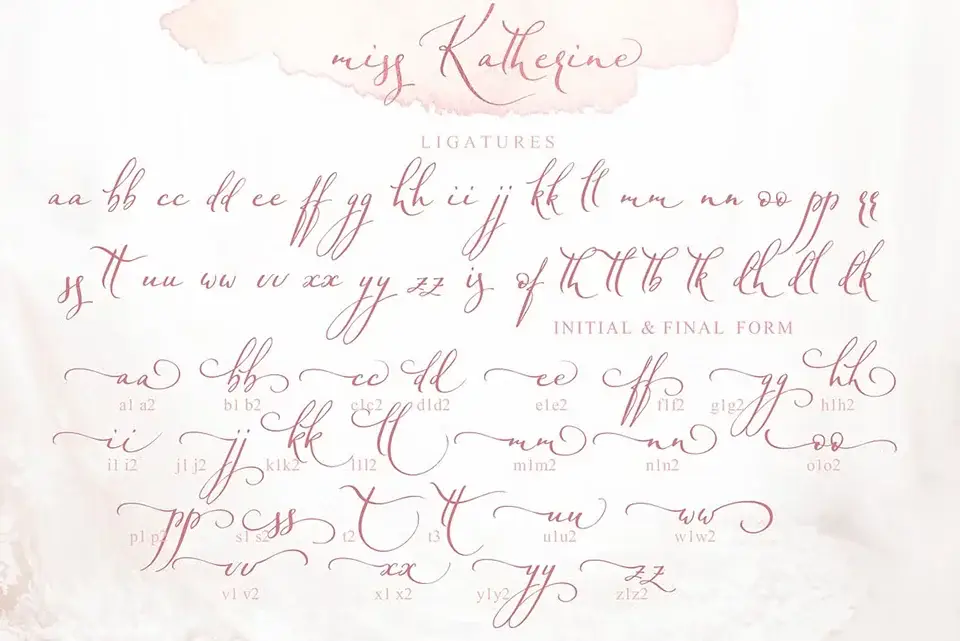 miss Katherine
LIGATURES
aa bb cc dd ee ff gg hh ii jj kk ll mm nn oo pp qq
ss tt uu ww vv xx yy zz is of th tl tb tk dh dl dk
INITIAL & FINAL FORM
aa bb cc dd ee ff gg hh
a1 a2 b1 b2 c1c2 d1d2 e1e2 f1f2 g1g2 h1h2
ii jj kk ll mm nn oo
i1 i2 j1 j2 k1k2 l1l2 m1m2 n1n2 o1o2
pp ss t tt uu ww
p1 p2 s1 s2 t2 t3 u1u2 w1w2
vv xx yy zz
v1 v2 x1 x2 y1y2 z1z2